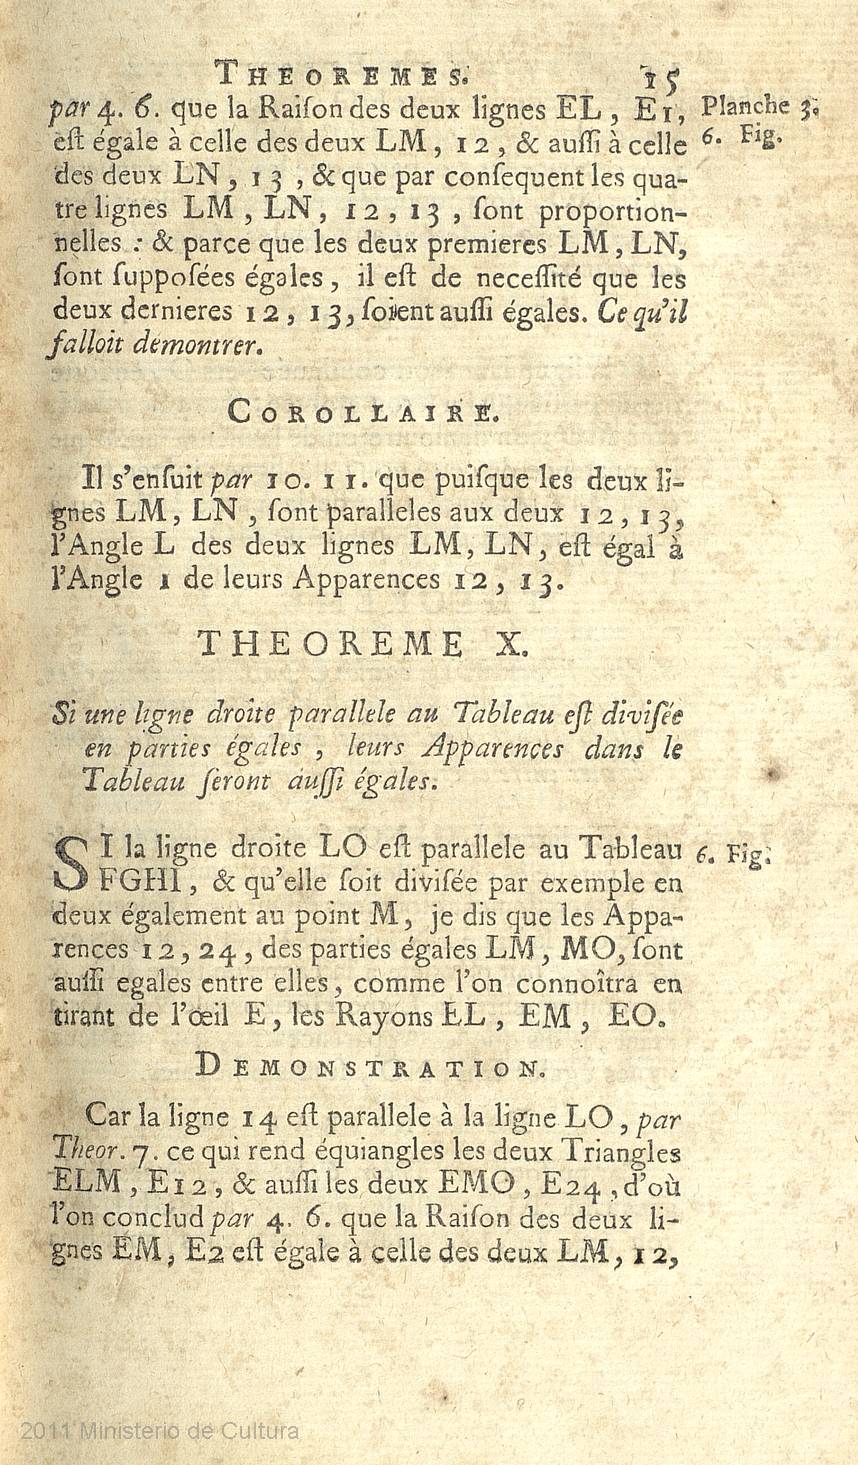 THEOREMES. 15
par 4. 6. que la Raiſon des deux lignes EL, E1, Planche 3.
eſt égale à celle des deux LM, 12, & auſſi à celle 6. Fig.
des deux LN, 13, & que par conſequent les qua-
tre lignes LM, LN, 12, 13, ſont proportion-
nelles : & parce que les deux premieres LM, LN,
ſont ſuppoſées égales, il eſt de neceſſité que les
deux dernieres 12, 13, ſoient auſſi égales. Ce qu'il
falloit demontrer.
COROLLAIRE.
Il s'enſuit par 10. 11. que puiſque les deux li-
gnes LM, LN, ſont paralleles aux deux 12, 13,
l'Angle L des deux lignes LM, LN, eſt égal à
l'Angle 1 de leurs Apparences 12, 13.
THEOREME X.
Si une ligne droite parallele au Tableau eſt diviſée
en parties égales, leurs Apparences dans le
Tableau ſeront auſſi égales.
SI la ligne droite LO eſt parallele au Tableau 6. Fig.
FGHI, & qu'elle ſoit diviſée par exemple en
deux également au point M, je dis que les Appa-
rences 12, 24, des parties égales LM, MO, ſont
auſſi egales entre elles, comme l'on connoîtra en
tirant de l'œil E, les Rayons EL, EM, EO.
DEMONSTRATION.
Car la ligne 14 eſt parallele à la ligne LO, par
Theor. 7. ce qui rend équiangles les deux Triangles
ELM, E12, & auſſi les deux EMO, E24, d'où
l'on conclud par 4. 6. que la Raiſon des deux li-
gnes EM, E2 eſt égale à celle des deux LM, 12,
2011 Ministerio de Cultura